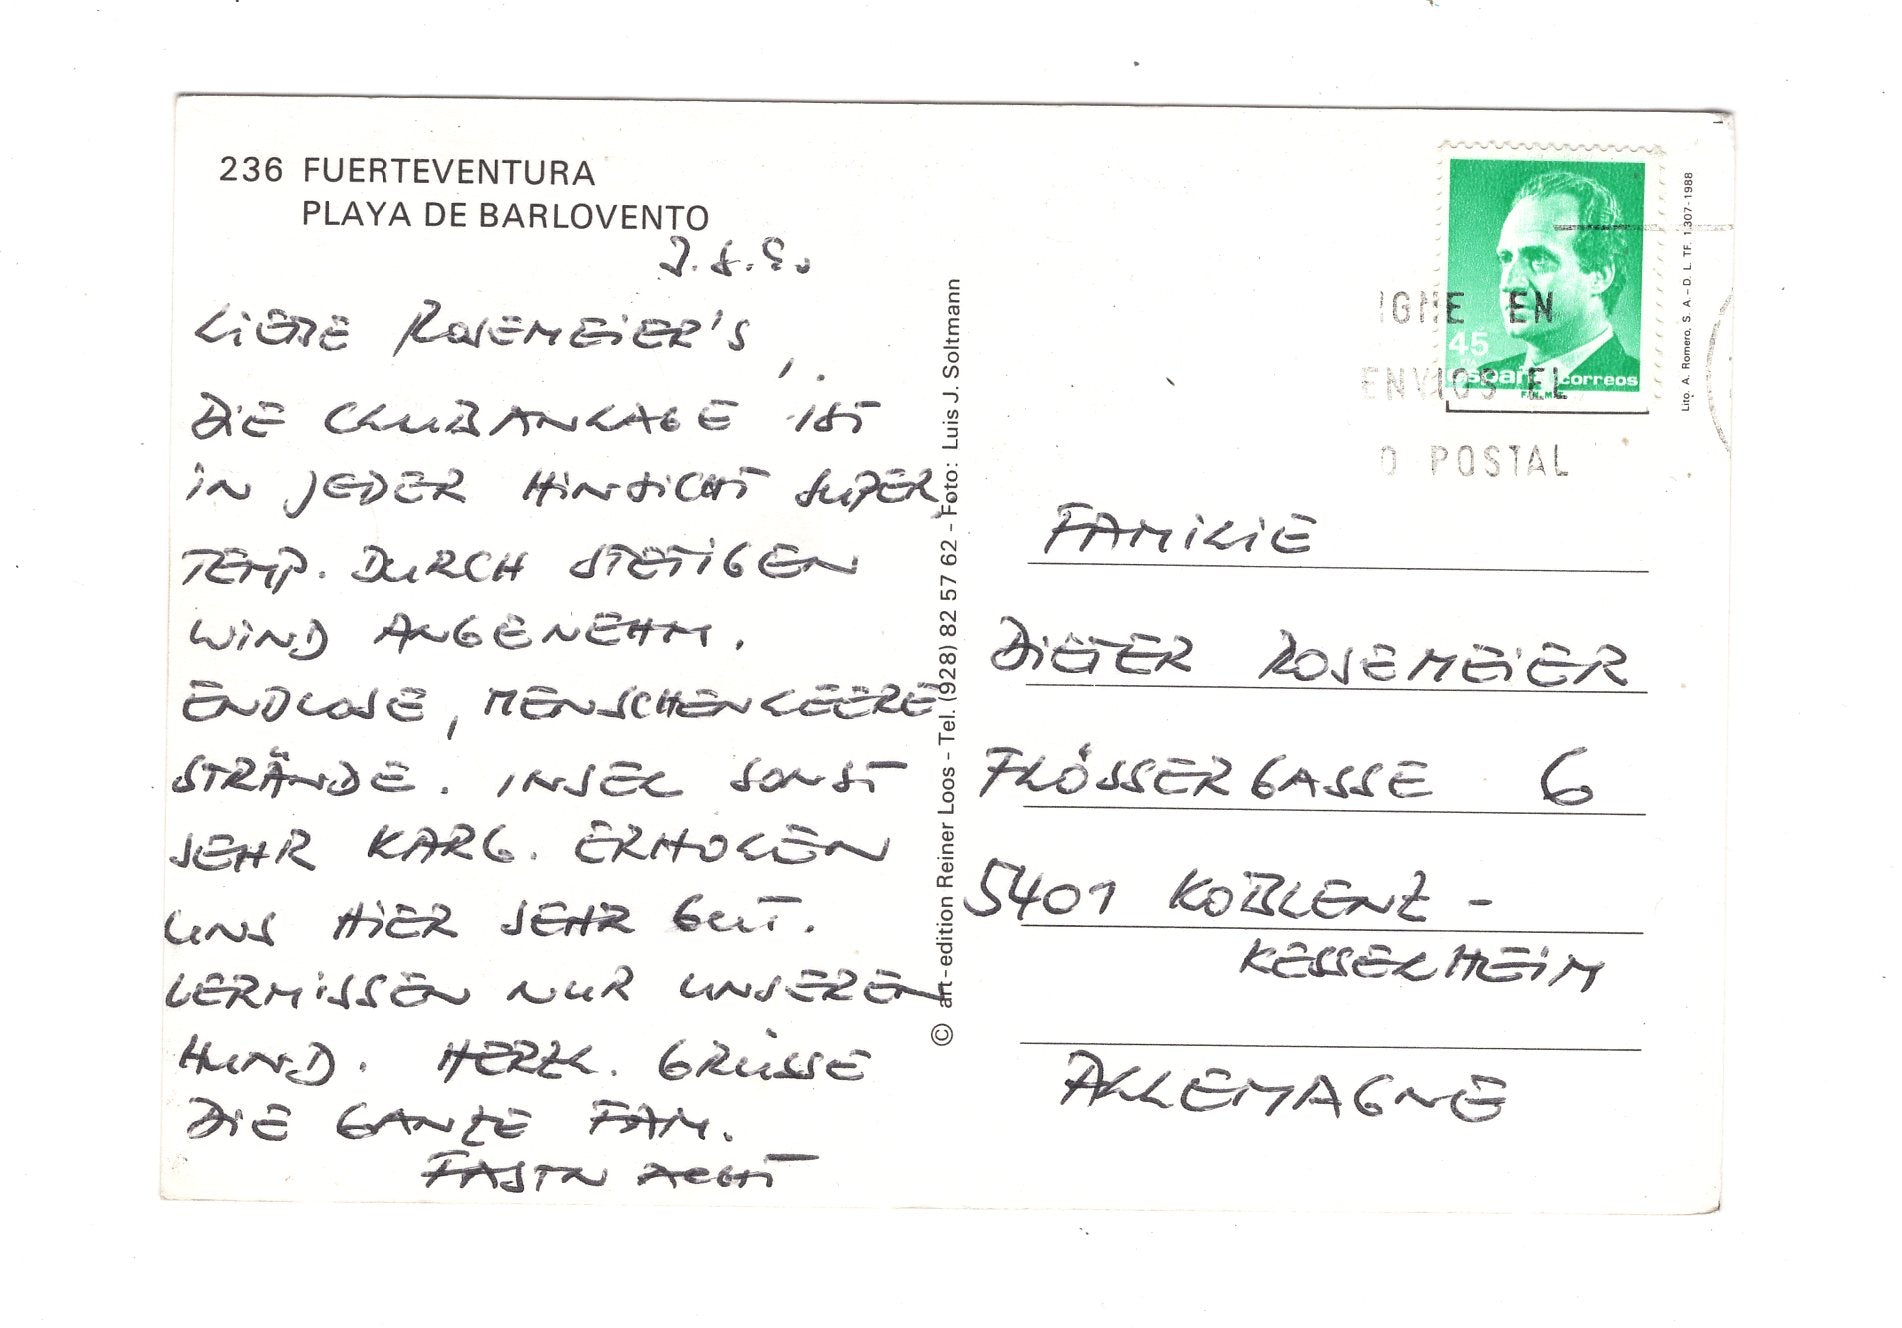 236 FUERTEVENTURA
PLAYA DE BARLOVENTO
LIEBE ROSEMEIER'S,
DIE CLUBANLAGE IST
IN JEDER HINSICHT SUPER,
TEMP. DURCH STETIGEN
WIND ANGENEHM.
ENDLOSE, MENSCHENLEERE
STRÄNDE. INSEL SONST
SEHR KARG. ERHOLEN
UNS HIER SEHR GUT.
VERMISSEN NUR UNSEREN
HUND. HERZL. GRÜSSE
DIE GANZE FAM.
© art-edition Reiner Loos - Tel. (928) 82 57 62 - Foto: Luis J. Soltmann
45
España correos
F.N.M.T.
IGNE EN
ENVIOS EL
O POSTAL
Lito. A. Romero, S. A. - D. L. TF. 1.307-1988
FAMILIE
DIETER ROSEMEIER
FLÖSSERGASSE 6
5401 KOBLENZ -
KESSELHEIM
ALLEMAGNE